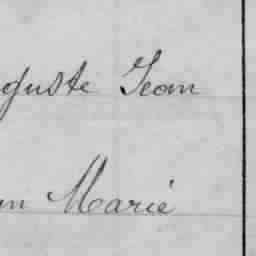 guste Jean
n Marie